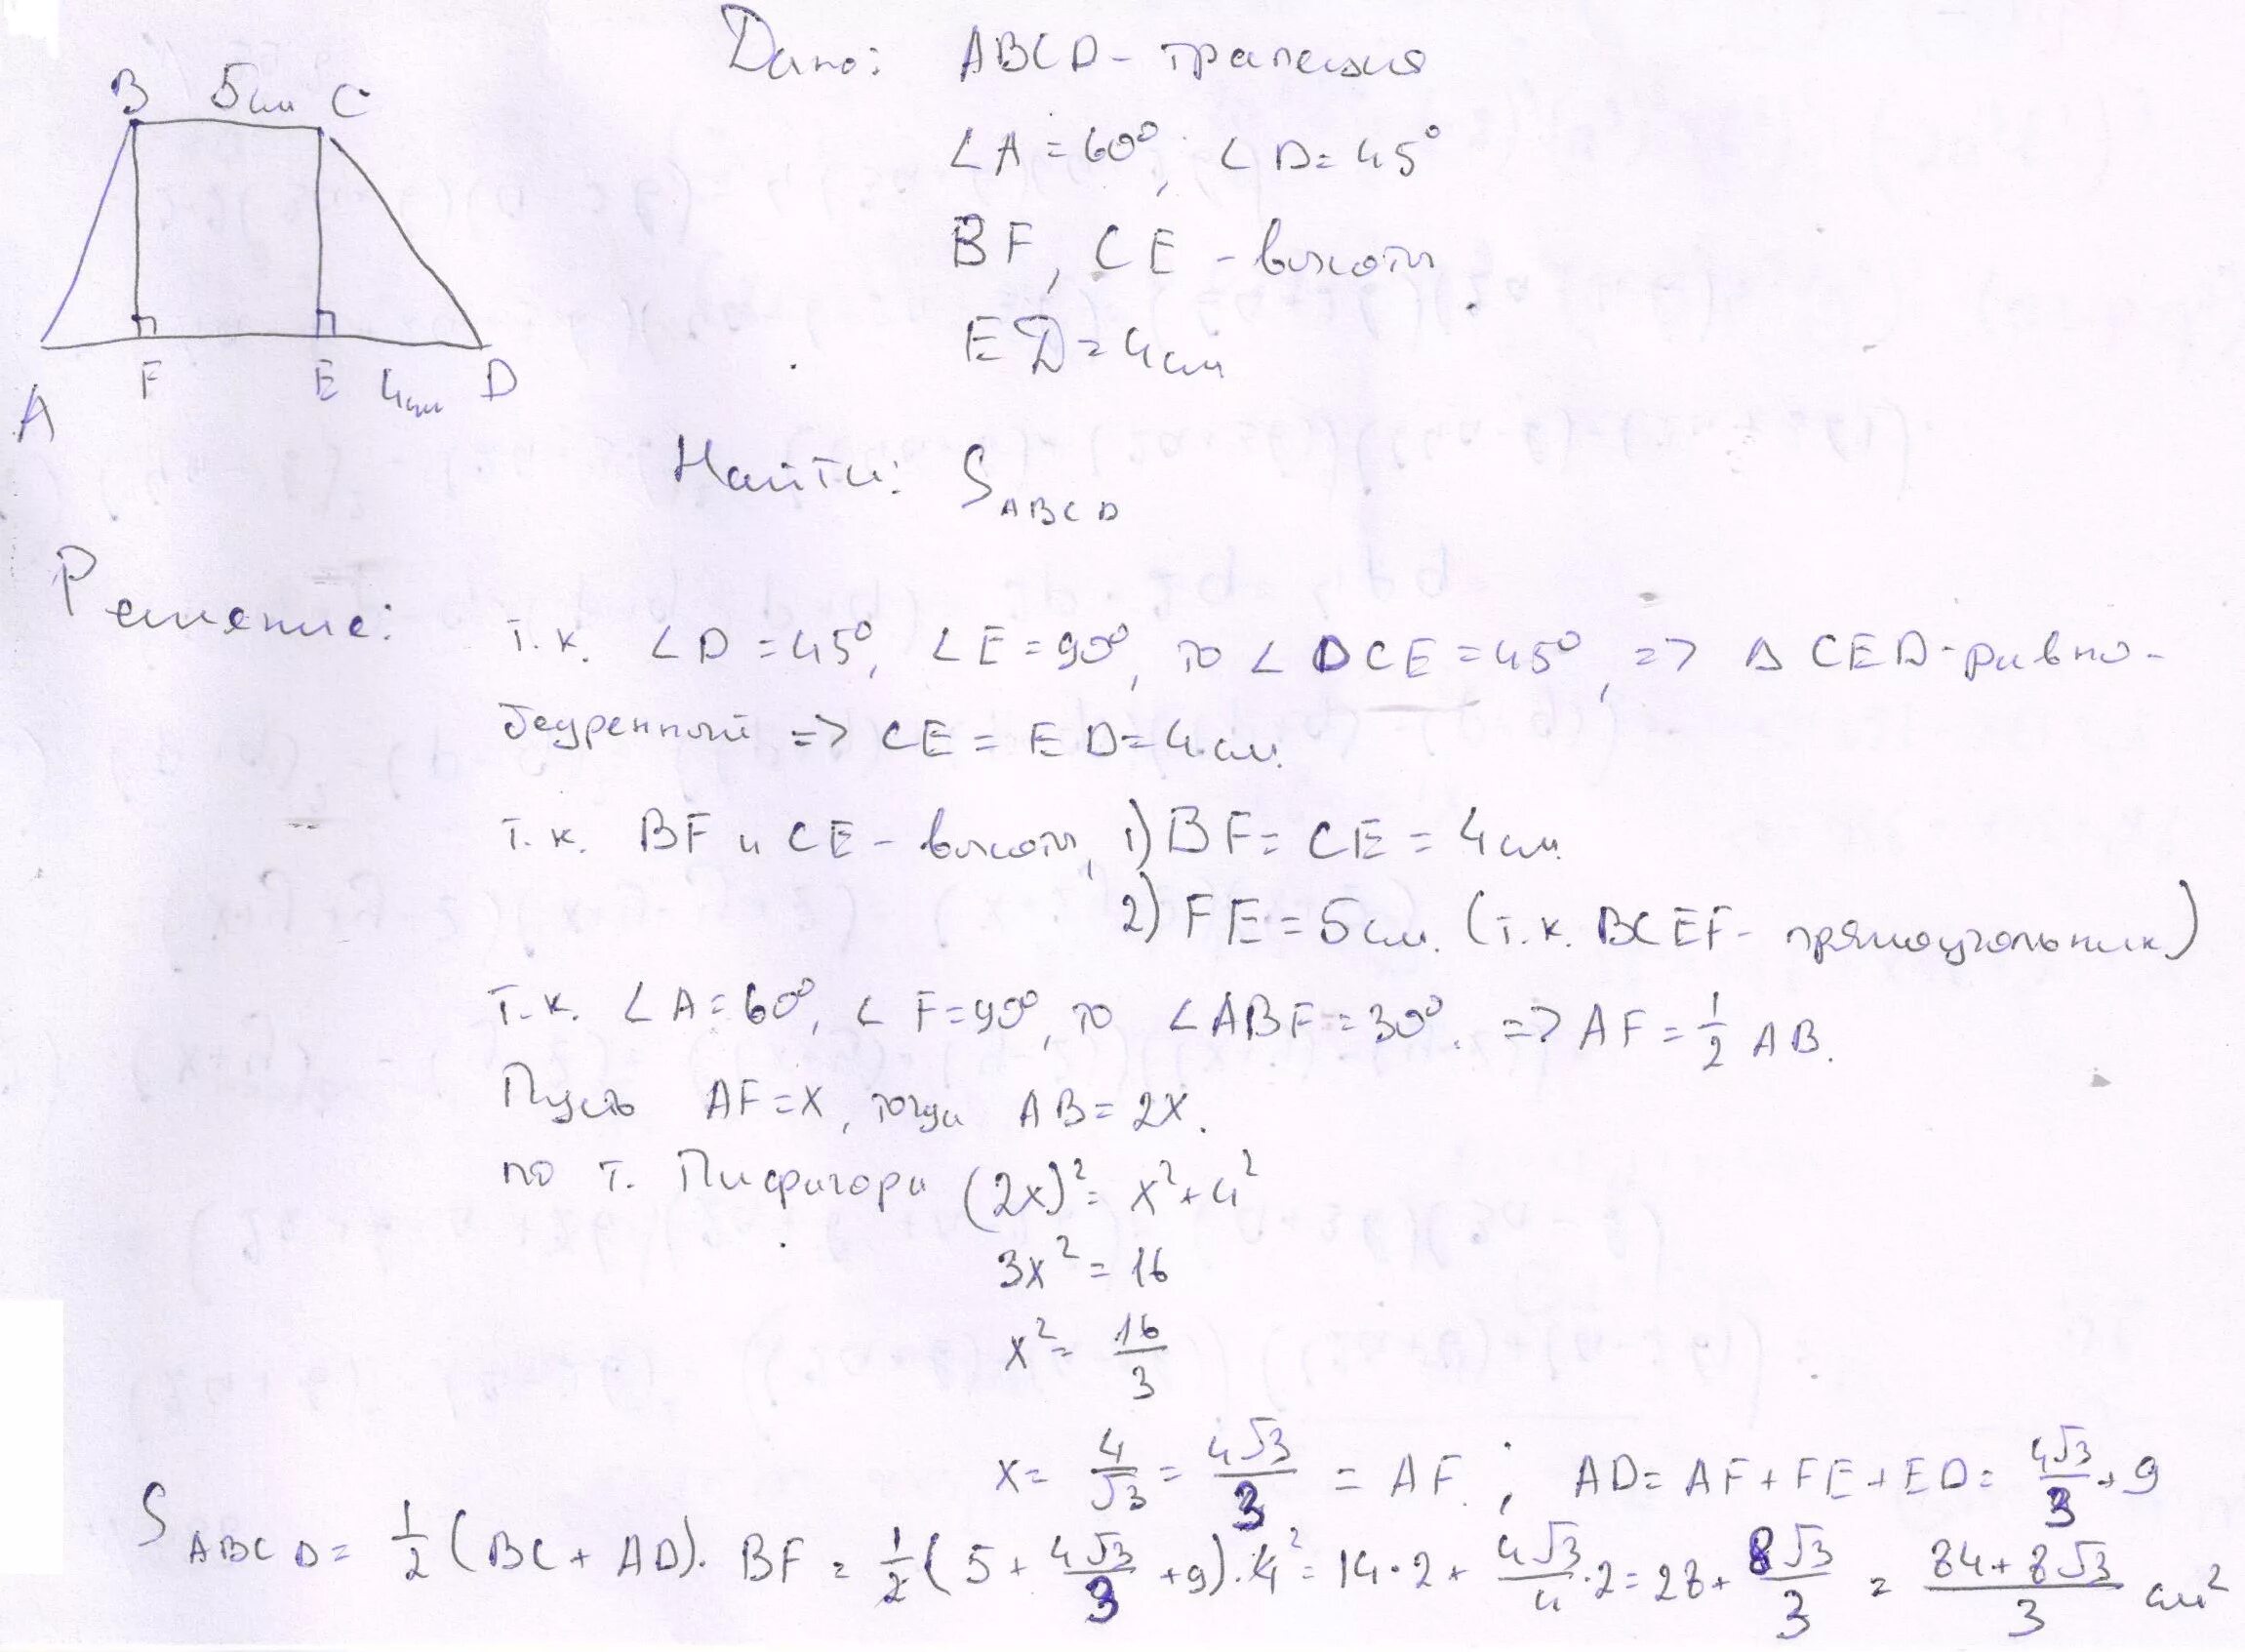 Дано: ABCD - трапеция
B 5см C
∠A = 60°, ∠D = 45°
BF, CE - высоты
ED = 4см
A F E 4см D
Найти: S_ABCD
Решение:
т.к. ∠D = 45°, ∠E = 90°, то ∠DCE = 45°, => Δ CED - равно-
бедренный => CE = ED = 4см.
т.к. BF и CE - высоты, 1) BF = CE = 4см.
2) FE = 5см. (т.к. BCEF - прямоугольник)
т.к. ∠A = 60°, ∠F = 90°, то ∠ABF = 30°. => AF = 1/2 AB.
Пусть AF = x, тогда AB = 2x.
по т. Пифагора (2x)² = x² + 4²
3x² = 16
x² = 16/3
x = 4/√3 = 4√3/3 = AF. ; AD = AF + FE + ED = 4√3/3 + 9
S_ABCD = 1/2 (BC + AD) · BF = 1/2 (5 + 4√3/3 + 9) · 4² = 14 · 2 + 4√3/4 · 2 = 28 + 8√3/3 = (84 + 8√3)/3 см²